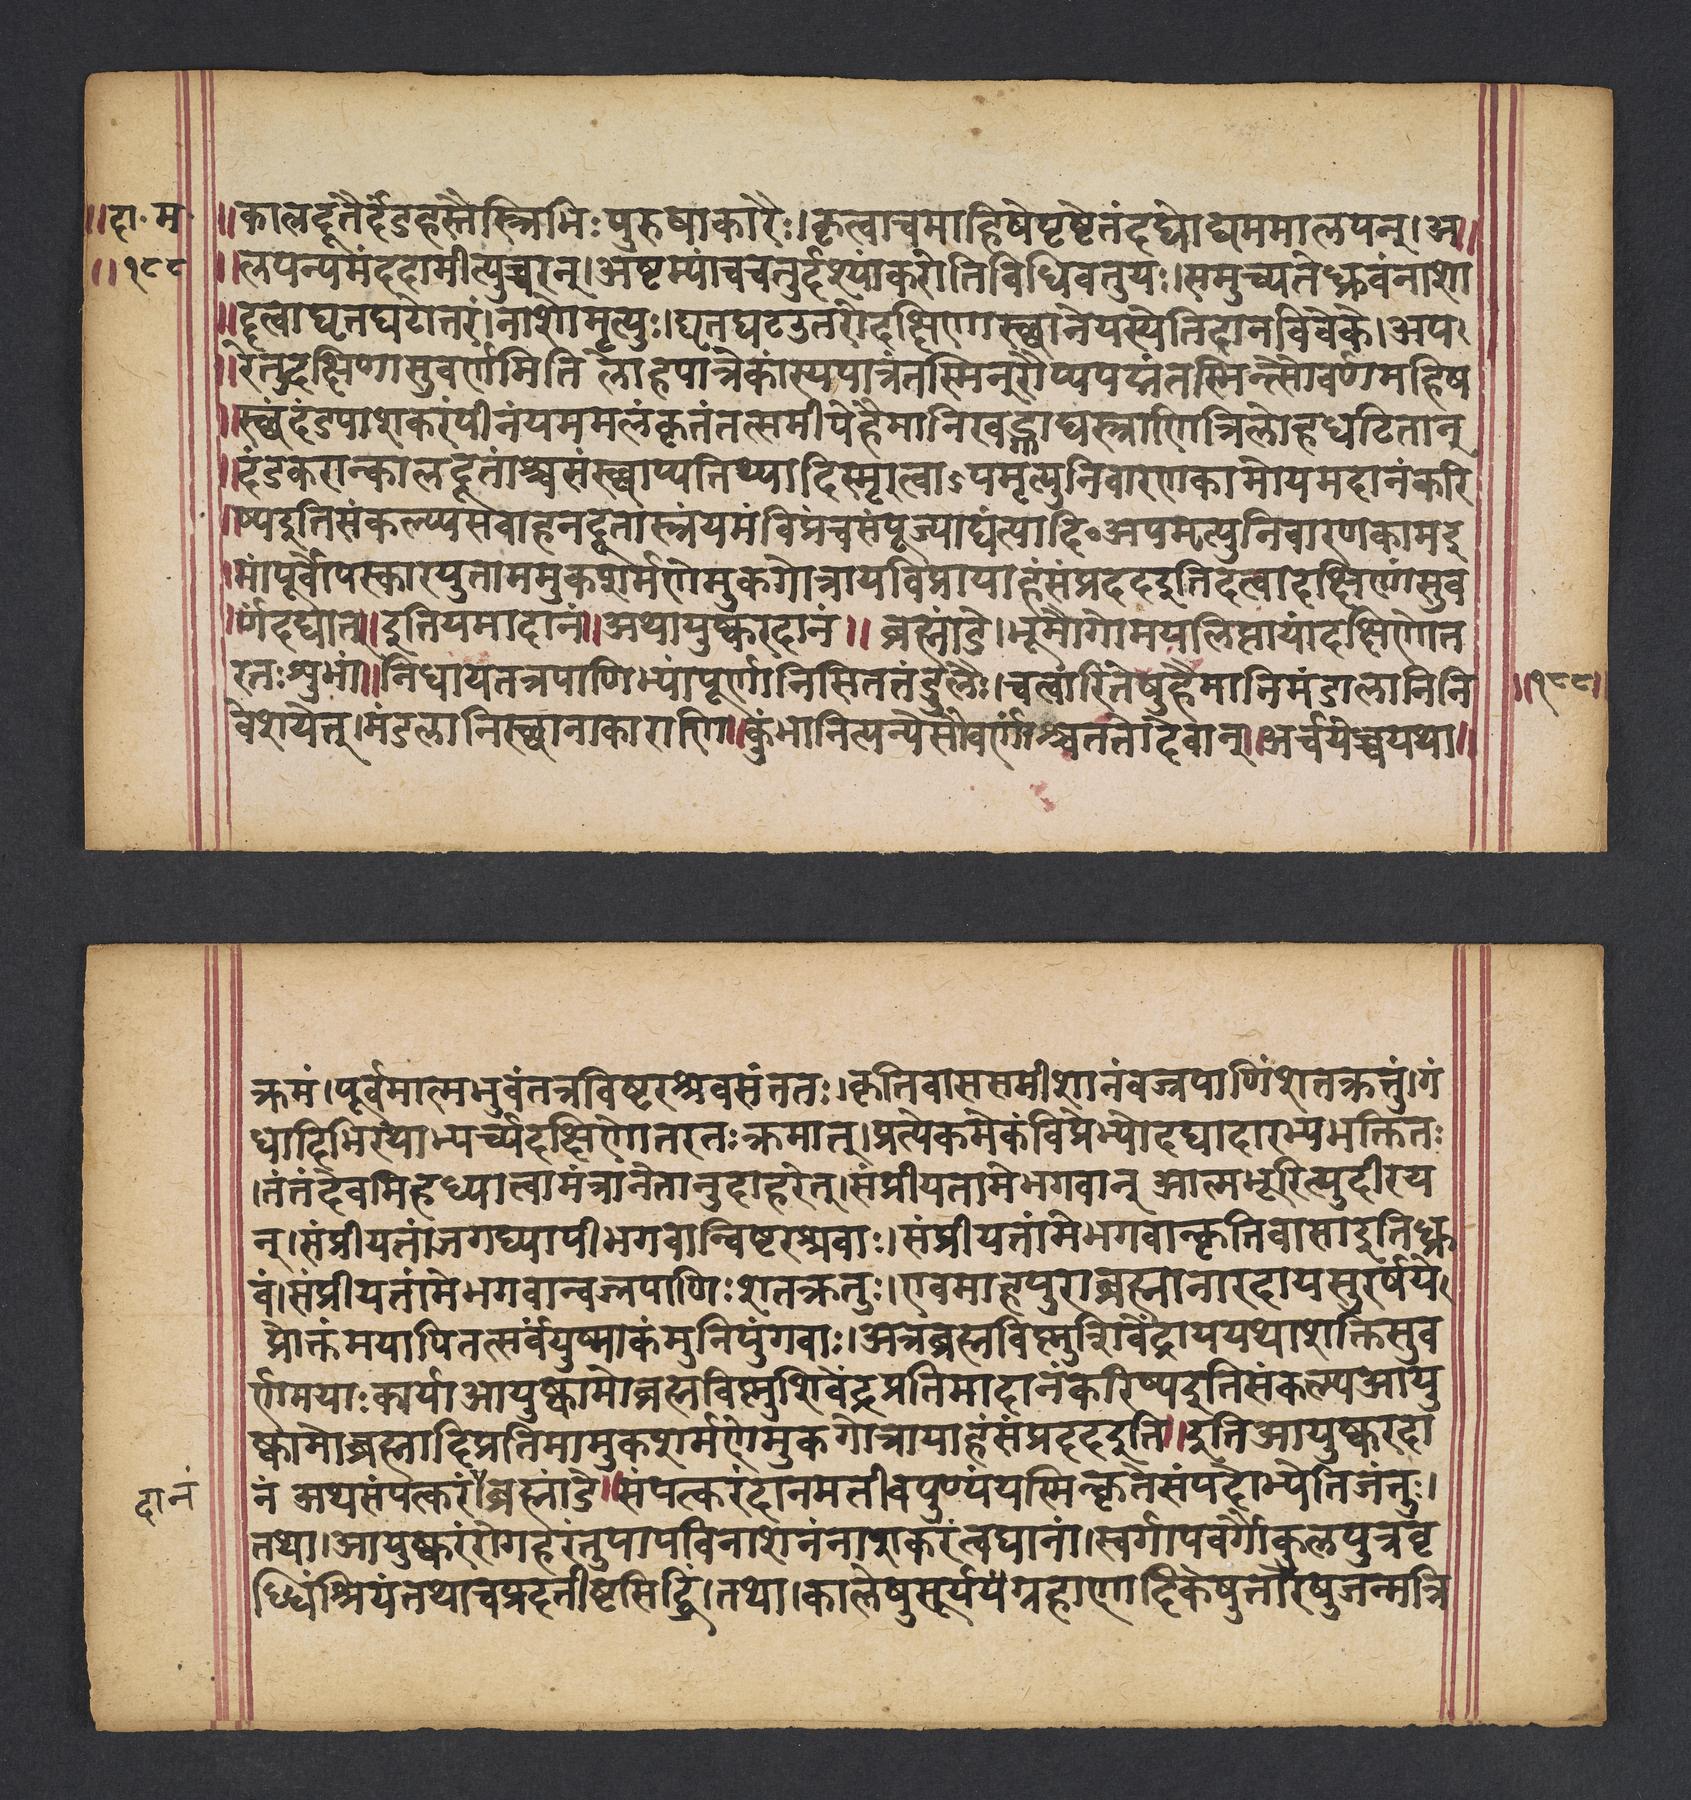 ॥दा॰म॰
॥१८८
॥कालदूतैर्दंडहस्तैस्त्रिभिःपुरुषाकारैः।कृत्वाचमाहिषेपृष्टेतंदद्योद्यममालपन्।अ॥
॥लपन्यमंददामीत्युच्चरन्।अष्टम्यांचचतुर्दश्यांकरोतिविधिवत्तुयः।समुच्यतेध्रुवंनाशो
॥दृत्वाघृतघटोत्तरं।नाशोमृत्युः।घृतघटउत्तरोदक्षिणास्छानेयस्येतिदानविवेके।अप
॥रेतुदक्षिणासुवर्णमिति लोहपात्रेकांस्यपात्रंतस्मिन्रौप्यपद्मंतस्मिन्सौवर्णमहिष
॥स्छंदंडपाशकरंपीनंयममलंकृतंतत्समीपेहैमानिखड्गाद्यस्त्राणित्रिलोहघटितान्
॥दंडकरान्कालदूतांश्चसंस्छाप्यतिथ्यादिस्मृत्वाऽपमृत्युनिवारणकामोयमदानंकरि
॥ष्यइतिसंकल्प्यसवाहनदूतास्त्रंयमंविप्रंचसंपूज्याद्येत्यादि॰अपमृत्युनिवारणकामइ
॥मांपूर्वोपस्कारयुताममुकशर्मणेमुकगोत्रायविप्रायाहंसंप्रददइतिदत्वादक्षिणांसुव
॥र्णंदद्यात्॥इतियमादानं॥अथायुष्करदानं॥ ब्रह्मांडे।भूमौगोमयलिप्तायांदक्षिणोत
रतःशुभां॥निधायतत्रपाणिभ्यांपूर्णानिसिततंडुलैः।चत्वारितेषुहैमानिमंडालानिनि
वेशयेत्।मंडलानिस्छानाकाराणि॥कुंभानित्यन्येसौवर्णांश्चततोदेवान्॥अर्चयेच्चयथा॥
॥१८८॥
क्रमं।पूर्वमात्मभुवंतत्रविष्टरश्रवसंततः।कृतिवाससमीशानंवज्रपाणिंशतक्रतुं।गं
धादिभिरथाभ्यर्च्यदक्षिणोतरतःक्रमात्।प्रत्येकमेकंविप्रेभ्योदद्यादारभ्यभक्तितः
।तंतंदेवमिहध्यात्वामंत्रानेतानुदाहरेत्।संप्रीयतामेभगवान् आत्मभूरित्युदीरय
न्।संप्रीयतांजगद्यापीभगवान्विष्टरश्रवाः।संप्रीयतांमेभगवान्कृतिवासाइतिध्रु
वं।संप्रीयतांमेभगवान्वज्रपाणिःशतक्रतुः।एवमाहपुराब्रह्मानारदायसुरर्षये
प्रोक्तंमयापितत्सर्वंयुष्माकंमुनिपुंगवाः।अत्रब्रह्मविष्णुशिवेंद्राययथाशक्तिसुव
र्णमयाःकार्याआयुष्कामोब्रह्मविष्णुशिवेंद्रप्रतिमादानंकरिष्यइतिसंकल्प्यआयु
ष्कामोब्रह्मादिप्रतिमामुकशर्मणेमुकगोत्रायाहंसंप्रददइति॥इतिआयुष्करदा
दानं
नं अथसंपत्करं॥ब्रह्मांडे॥संपत्करंदानमतीवपुण्यंयस्मिन्कृतेसंपदोभ्येतिजंतुः।
तथा।आयुष्करंरोगहरंतुपापविनाशनंनाशकरंत्वघानां।स्वर्गापवर्गौकुलपुत्रवृ
ध्धिंश्रियंतथाचप्रदतीष्टसिद्धिं।तथा।कालेषुसूर्ययग्रहाणादिकेषुतारेषुजन्मत्रि